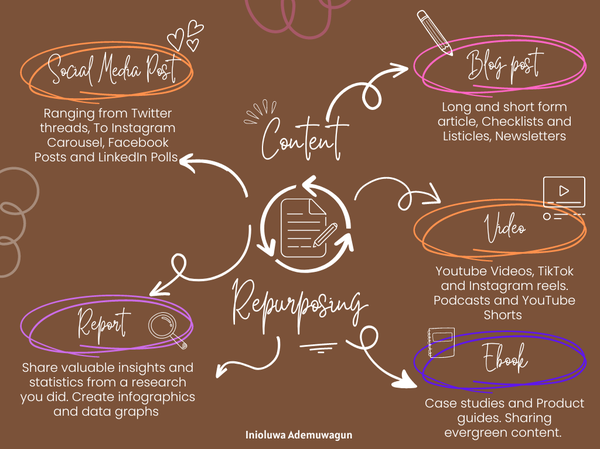 Social Media Post
Ranging from Twitter
threads, To Instagram
Carousel, Facebook
Posts and LinkedIn Polls
Content
Blog post
Long and short form
article, Checklists and
Listicles, Newsletters
Video
Youtube Videos, TikTok
and Instagram reels.
Podcasts and YouTube
Shorts
Repurposing
Report
Share valuable insights and
statistics from a research
you did. Create infographics
and data graphs
Ebook
Case studies and Product
guides. Sharing
evergreen content.
Inioluwa Ademuwagun